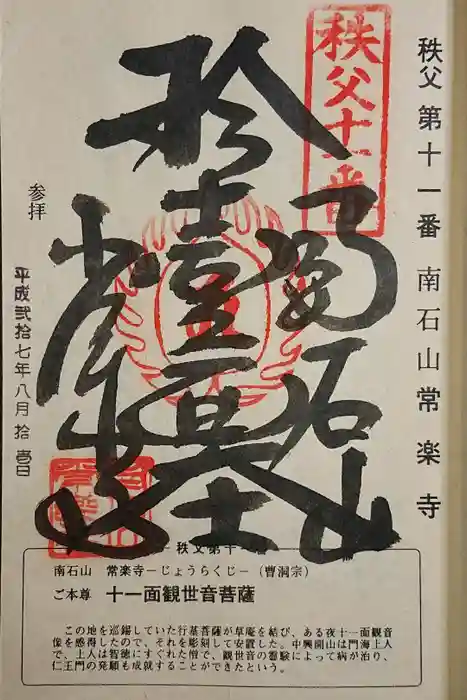 秩父 第十一番 南石山 常楽寺
秩父十一番
南石山
常楽寺
参拝
平成弐拾七年八月拾壱日
秩父第十一番
南石山 常楽寺－じょうらくじ－（曹洞宗）
ご本尊 十一面観世音菩薩
この地を巡錫していた行基菩薩が草庵を結び、ある夜十一面観音
像を感得したので、それを彫刻して安置した。中興開山は門海上人
で、上人は智徳にすぐれた僧で、観世音の霊験によって病が治り、
仁王門の発願も成就することができたという。